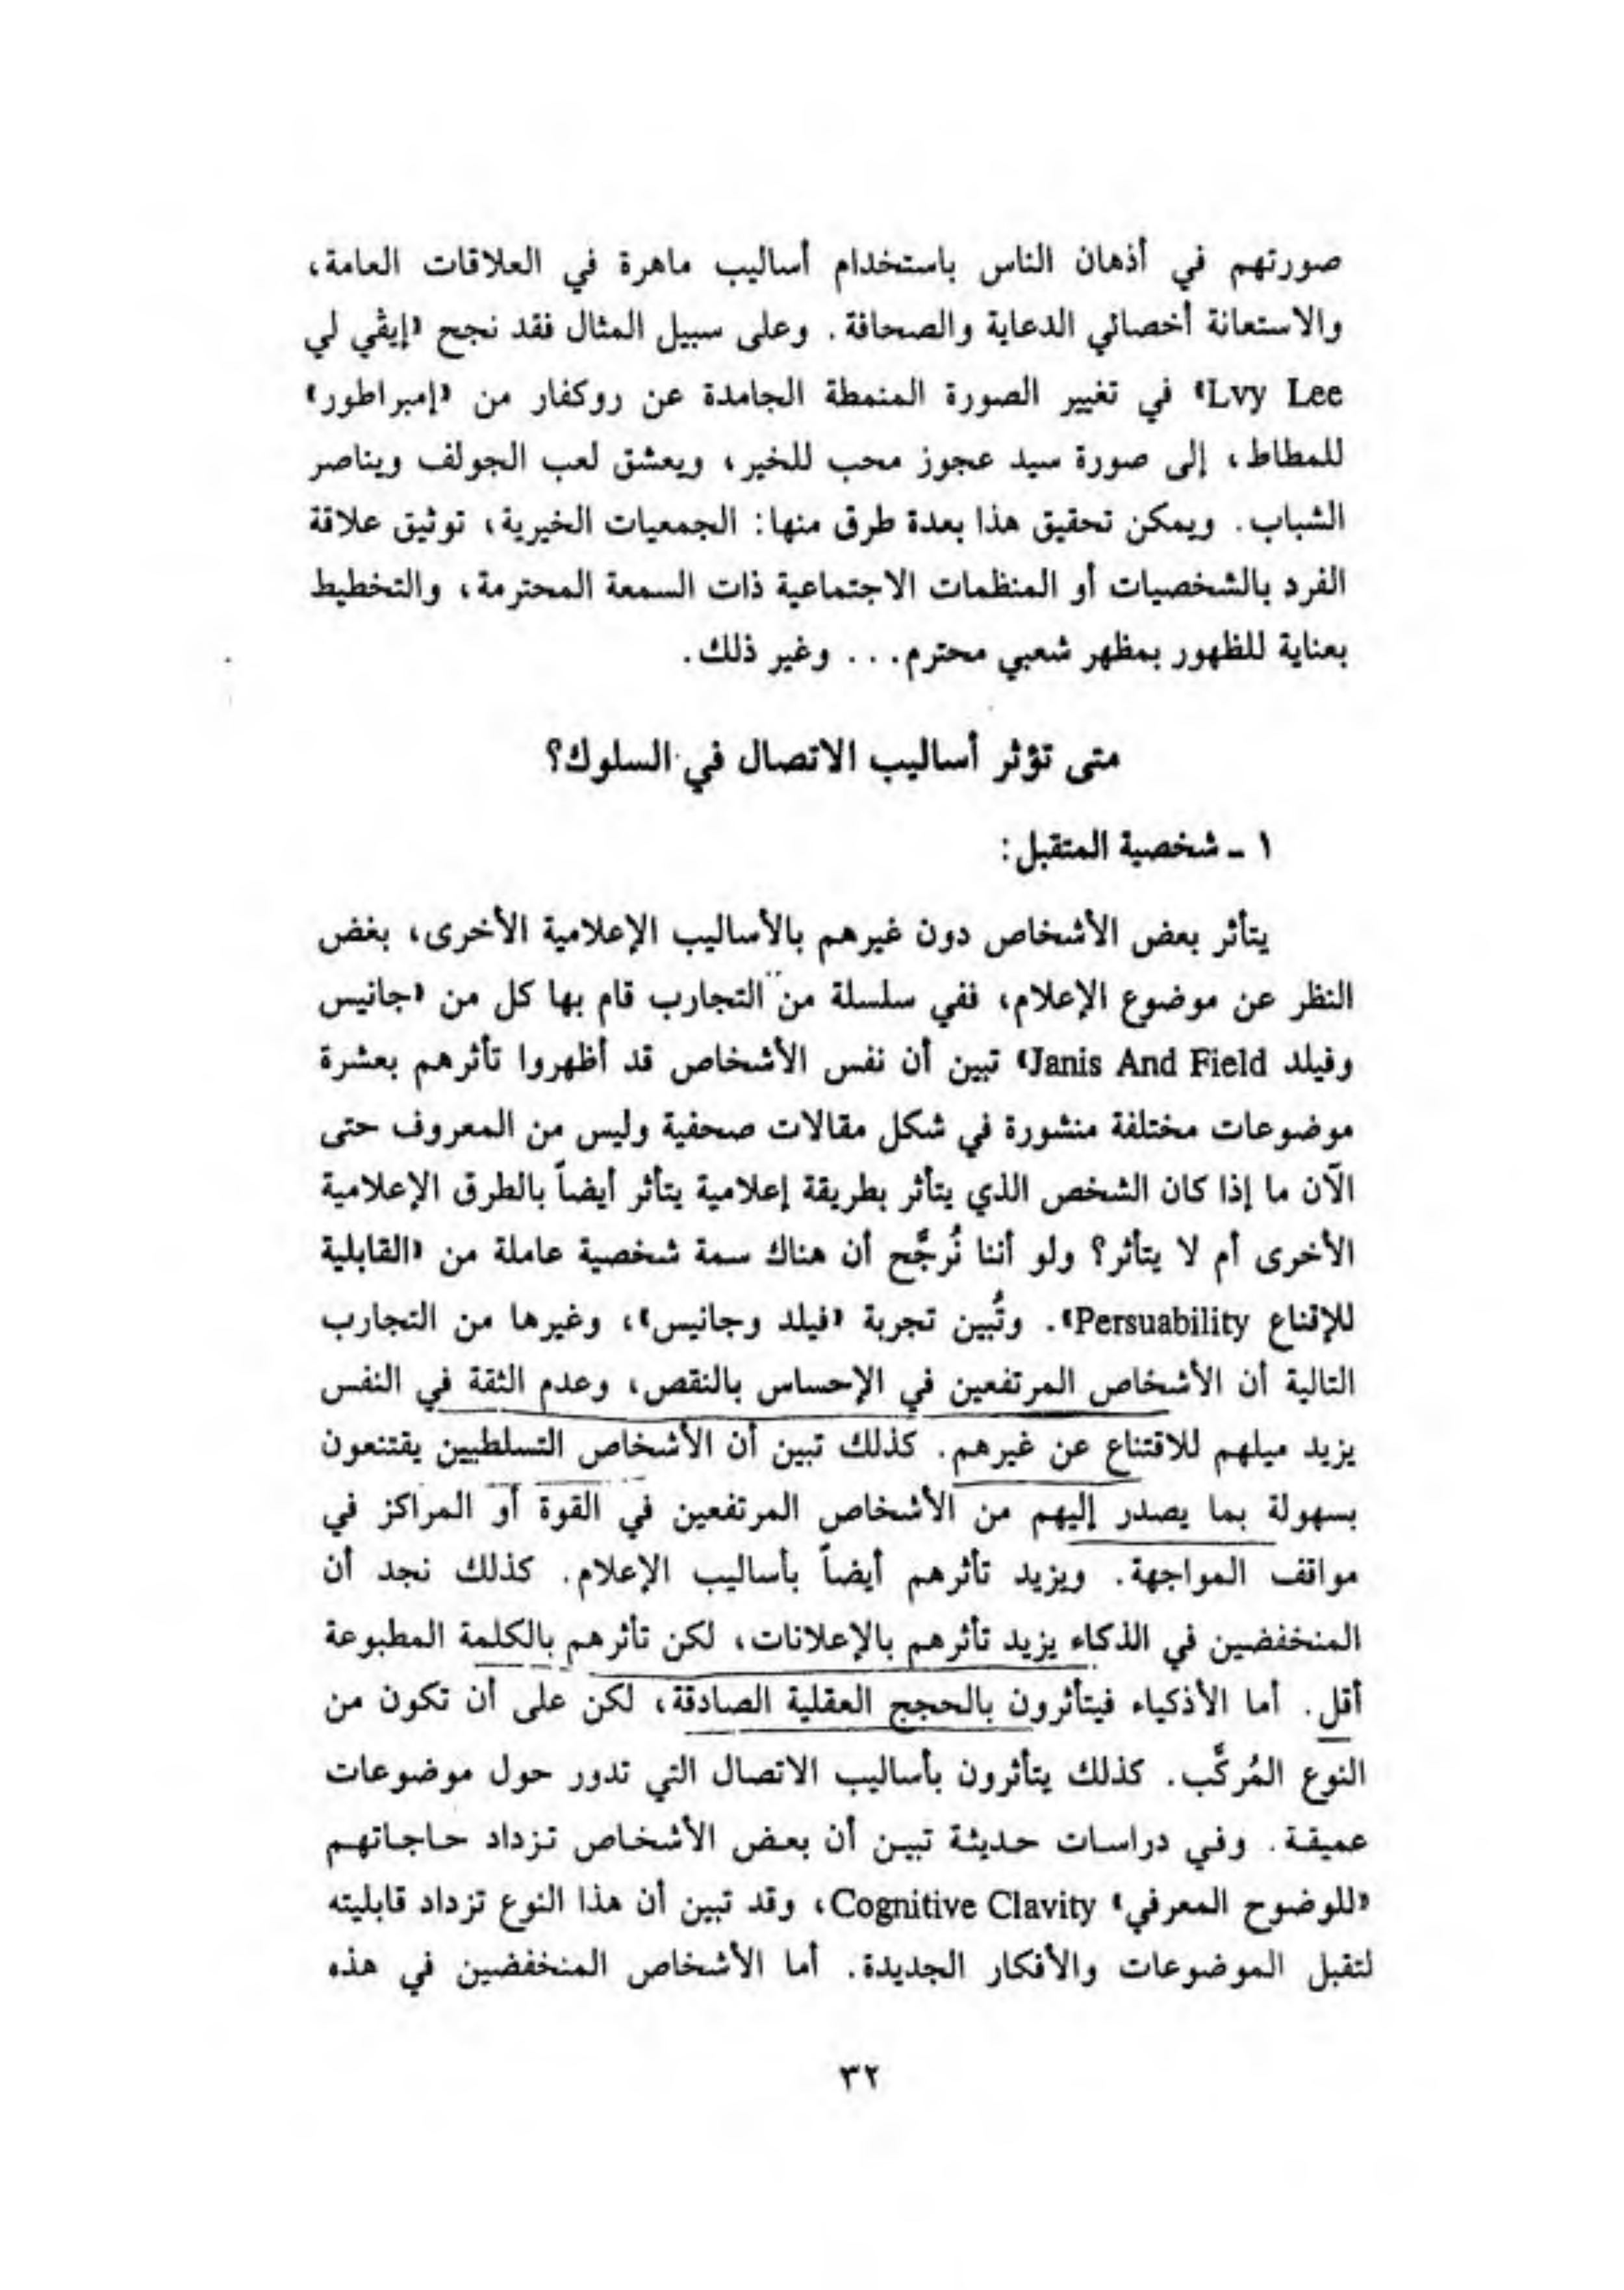 صورتهم في أذهان الناس باستخدام أساليب ماهرة في العلاقات العامة،
والاستعانة أخصائي الدعاية والصحافة. وعلى سبيل المثال فقد نجح «إيڤي لي
Lvy Lee» في تغيير الصورة المنمطة الجامدة عن روكفار من «إمبراطور»
للمطاط، إلى صورة سيد عجوز محب للخير، ويعشق لعب الجولف ويناصر
الشباب. ويمكن تحقيق هذا بعدة طرق منها: الجمعيات الخيرية، توثيق علاقة
الفرد بالشخصيات أو المنظمات الاجتماعية ذات السمعة المحترمة، والتخطيط
بعناية للظهور بمظهر شعبي محترم... وغير ذلك.
متى تؤثر أساليب الاتصال في السلوك؟
١ - شخصية المتقبل:
يتأثر بعض الأشخاص دون غيرهم بالأساليب الإعلامية الأخرى، بغض
النظر عن موضوع الإعلام، ففي سلسلة من التجارب قام بها كل من «جانيس
وفيلد Janis And Field» تبين أن نفس الأشخاص قد أظهروا تأثرهم بعشرة
موضوعات مختلفة منشورة في شكل مقالات صحفية وليس من المعروف حتى
الآن ما إذا كان الشخص الذي يتأثر بطريقة إعلامية يتأثر أيضاً بالطرق الإعلامية
الأخرى أم لا يتأثر؟ ولو أننا نُرجَّح أن هناك سمة شخصية عاملة من «القابلية
للإقناع Persuability». وتُبين تجربة «فيلد وجانيس»، وغيرها من التجارب
التالية أن الأشخاص المرتفعين في الإحساس بالنقص، وعدم الثقة في النفس
يزيد ميلهم للاقتناع عن غيرهم. كذلك تبين أن الأشخاص التسلطيين يقتنعون
بسهولة بما يصدر إليهم من الأشخاص المرتفعين في القوة أو المراكز في
مواقف المواجهة. ويزيد تأثرهم أيضاً بأساليب الإعلام. كذلك نجد أن
المنخفضين في الذكاء يزيد تأثرهم بالإعلانات، لكن تأثرهم بالكلمة المطبوعة
أقل. أما الأذكياء فيتأثرون بالحجج العقلية الصادقة، لكن على أن تكون من
النوع المُركَّب. كذلك يتأثرون بأساليب الاتصال التي تدور حول موضوعات
عميقة. وفي دراسات حديثة تبين أن بعض الأشخاص تزداد حاجاتهم
«للوضوح المعرفي» Cognitive Clavity، وقد تبين أن هذا النوع تزداد قابليته
لتقبل الموضوعات والأفكار الجديدة. أما الأشخاص المنخفضين في هذه
٣٢